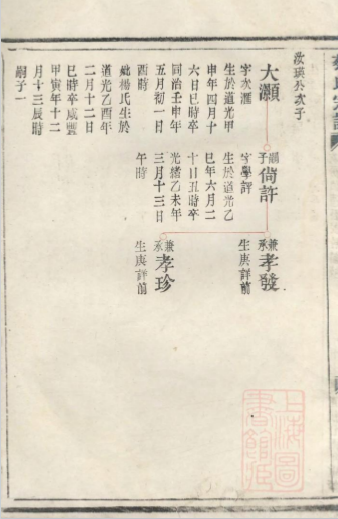 汝瑛公次子
大灝
字次滙
生於道光甲
申年四月十
六日巳時卒
同治壬申年
五月初一日
酉時
妣楊氏生於
道光乙酉年
二月十二日
巳時卒咸豐
甲寅年十二
月十三辰時
嗣子一
嗣子尙許
字學評
生於道光乙
巳年六月二
十日丑時卒
光緒乙未年
三月十三日
午時
兼承孝發
生庚詳前
兼承孝珍
生庚詳前
上海圖
書館